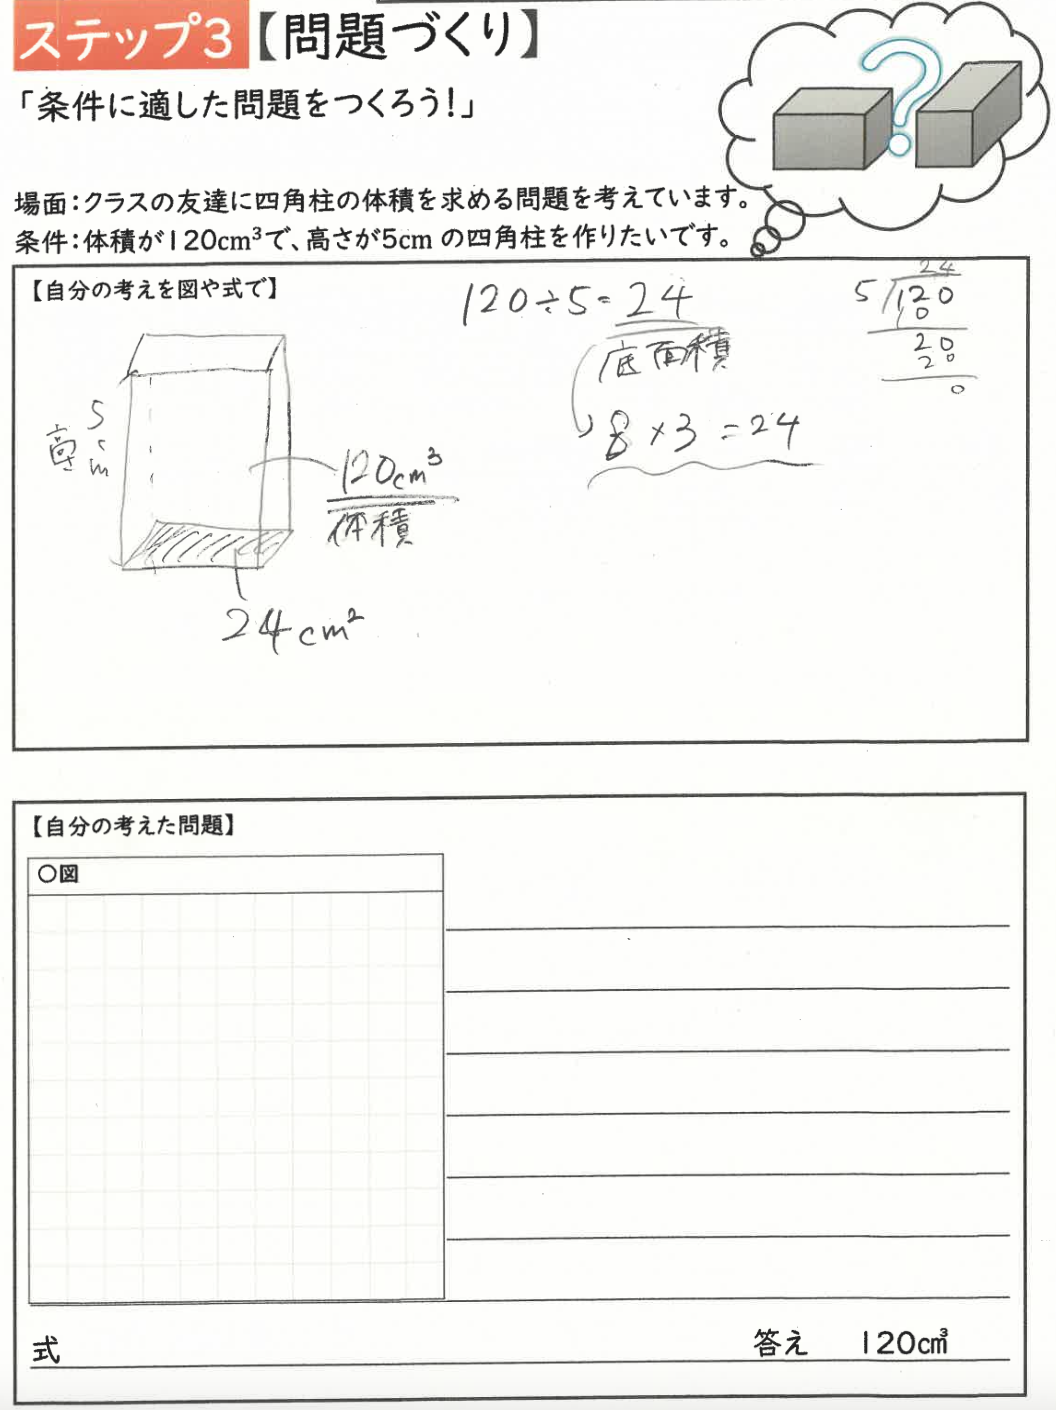 ステップ3【問題づくり】
「条件に適した問題をつくろう！」
場面：クラスの友達に四角柱の体積を求める問題を考えています。
条件：体積が120cm³で、高さが5cmの四角柱を作りたいです。
【自分の考えを図や式で】
120÷5=24
底面積
8×3=24
24
5)120
10
20
20
0
高さ
5cm
120cm³
体積
24cm²
【自分の考えた問題】
〇図
式
答え 120㎤